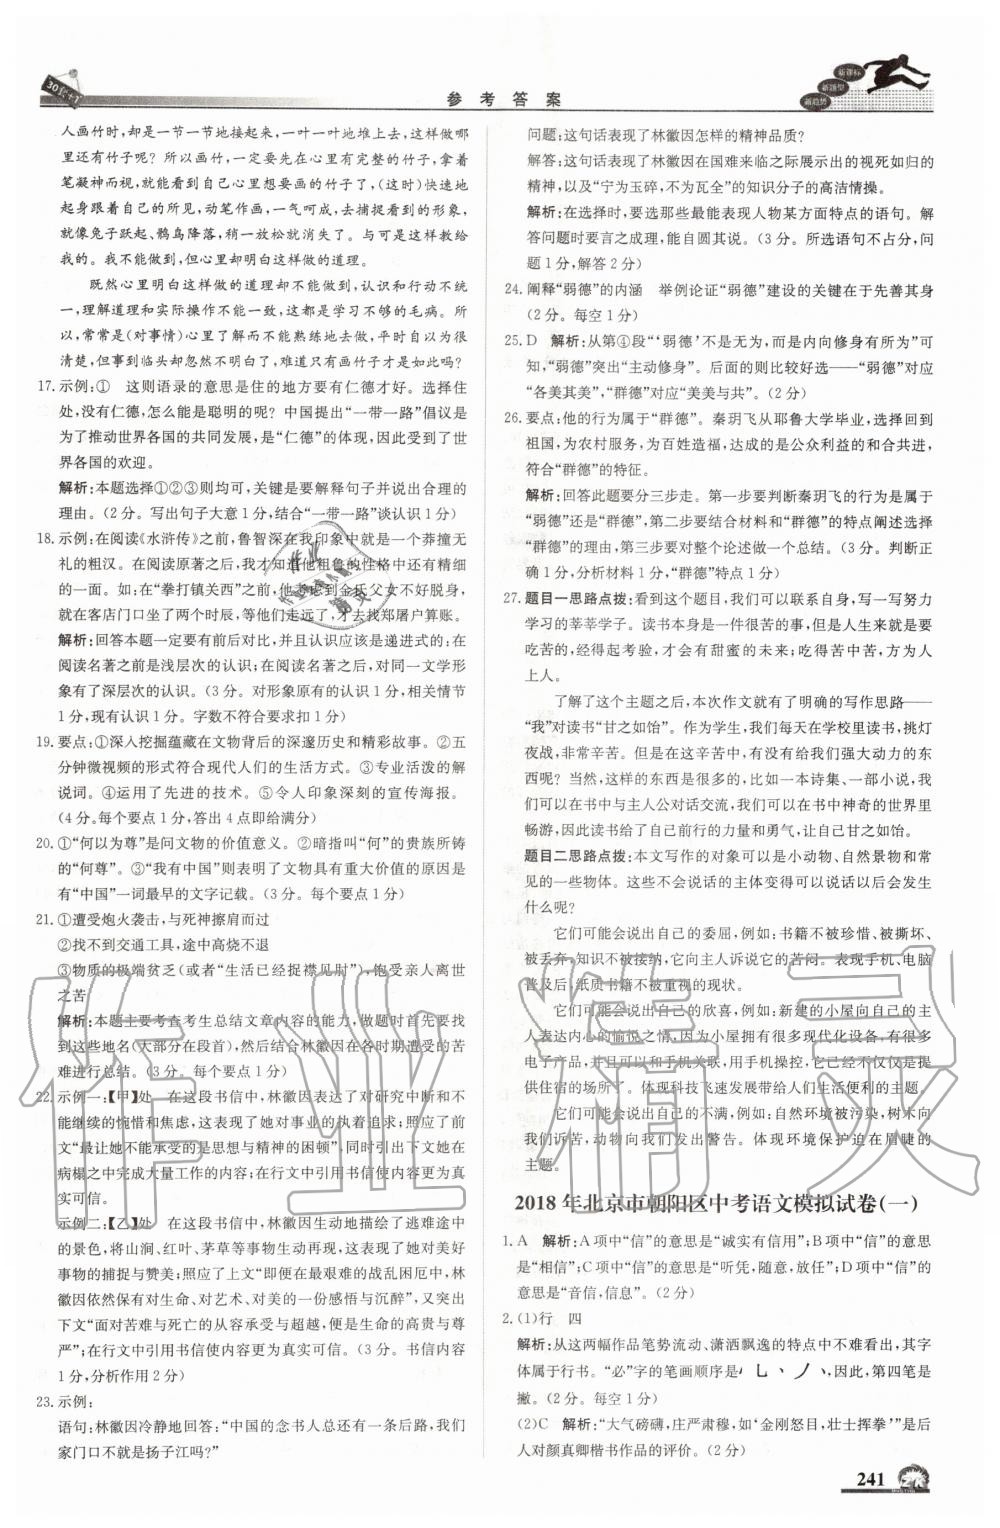 30套+1
参考答案
新课标
新题型
新趋势
人画竹时,却是一节一节地接起来,一叶一叶地堆上去,这样做哪
里还有竹子呢？所以画竹,一定要在心里有完整的竹子,拿着
笔凝神而视,就看到自己心里想要画的竹子了,(这时)快速地
起身跟着自己的所见,动笔作画,一气呵成,去追赶看到的形象,
就像兔子跃起、鹘鸟降落,稍一放松就消失了。与可是这样教给
我的。我不能做到,但心里明白这样做的道理。
既然心里明白这样做的道理却不能做到,认识和行动不统
一,理解道理和实际操作不能一致,这都是学习不够的毛病。所
以,常常是(对事情)心里了解而不能熟练地去做,平时自以为很
清楚,但事到临头却忽然不明白了,难道只有画竹子是这样吗？
17. 示例:① 这则语录的意思是住的地方要有仁德才好。选择住
处,没有仁德,怎么能是聪明的呢？中国提出“一带一路”倡议是
为了推动世界各国的共同发展,是“仁德”的体现,因此受到了世
界各国的欢迎。
解析:本题选择①②③则均可,关键是要解释句子并说出合理的
理由。(2分。写出句子大意1分,结合“一带一路”谈认识1分)
18. 示例:在阅读《水浒传》之前,鲁智深在我印象中就是一个莽撞无
礼的粗汉。在阅读原著之后,我才知道他粗鲁的性格中还有精细
的一面。如:在“拳打镇关西”之前,他考虑到金氏父女不好脱身,
就在客店门口坐了两个时辰,等他们走远了,才去找郑屠户算账。
解析:回答本题一定要有前后对比,并且认识应该是递进式的;在
阅读名著之前是浅层次的认识;在阅读名著之后,对同一文学形
象有了深层次的认识。(3分。对形象原有的认识1分,相关情节
1分,现有认识1分。字数不符合要求扣1分)
19. 要点:①深入挖掘蕴藏在文物背后的深邃历史和精彩故事。②五
分钟微视频的形式符合现代人们的生活方式。③专业活泼的解
说词。④运用了先进的技术。⑤令人印象深刻的宣传海报。
(4分。每个要点1分,答出4点即给满分)
20. ①“何以为尊”是问文物的价值意义。②暗指叫“何”的贵族所铸
的“何尊”。③“我有中国”则表明了文物具有重大价值的原因是
有“中国”一词最早的文字记载。(3分。每个要点1分)
21. ①遭受炮火袭击,与死神擦肩而过
②找不到交通工具,途中高烧不退
③物质的极端贫乏(或者“生活已经捉襟见肘”),饱受亲人离世
之苦
解析:本题主要考查考生总结文章内容的能力,做题时首先要找
到这些地名(大部分在段首),然后结合林徽因在各时期遭受的苦
难进行总结。(3分。每个要点1分)
22. 示例一:【甲】处 在这段书信中,林徽因表达了对研究中断和不
能继续的惋惜和焦虑,这表现了她对事业的执着追求;照应了前
文“最让她不能承受的是思想与精神的困顿”,与下文她在
病榻之中完成大量工作的内容;在行文中引用书信使内容更真
实可信。
示例二:【乙】处 在这段书信中,林徽因生动地描写了逃难途中,
将山涧、红叶、茅草等事物写得十分美好,这表现了她对美好
事物的担待与赞美;照应了上文“即便在最艰难的战乱困厄中,林
徽因依然保有对生命、对艺术、对美的一份感悟与沉醉”,又突出
下文“面对苦难与死亡的从容承受与生命的高贵与尊
严”;在行文中引用书信使内容更真实可信。(3分。书信内容
1分,分析作用2分)
23. 示例:
语句:林徽因冷静地回答:“中国的念书人总还有一条后路,我们
家门口不就是扬子江吗?”
问题:这句话表现了林徽因怎样的精神品质?
解答:这句话表现了林徽因在国难来临之际展示出的视死如归的
精神,以及“宁为玉碎,不为瓦全”的知识分子的高洁情操。
解析:在选择时,要选那些最能表现人物某方面特点的语句。解
答问题时要言之成理,能自圆其说。(3分。所选语句不占分,问
题1分,解答2分)
24. 阐释“弱德”的内涵 举例论证“弱德”建设的关键在于先善其身
(2分。每空1分)
25. D 解析:从第④段“‘弱德’不是无为,而是内向修身有所为”可
知,“弱德”突出“主动修身”。后面的则比较好选——“弱德”对应
“各美其美”,“群德”对应“美美与共”。(2分)
26. 要点:他的行为属于“群德”。秦玥飞从耶鲁大学毕业,选择回到
祖国,为农村服务,为百姓造福,达成的是公众利益的和合共进,
符合“群德”的特征。
解析:回答此题要分三步走。第一步要判断秦玥飞的行为是属于
“弱德”还是“群德”,第二步要结合材料和“群德”的特点阐述选择
“群德”的理由,第三步要对整个论述做一个总结。(3分。判断正
确1分,分析材料1分,“群德”特点1分)
27. 题目一思路点拨:看到这个题目,我们可以联系自身,写一写努力
学习的莘莘学子。读书本身是一件很苦的事,但是人生来就是要
吃苦的,经得起考验,才会有甜蜜的未来;吃得苦中苦,方为人
上人。
了解了这个主题之后,本次作文就有了明确的写作思路——
“我”对读书“甘之如饴”。作为学生,我们每天在学校里读书,挑灯
夜战,都非常辛苦。但是,还有哪些是我们强大动力的东
西呢？当然,这样的东西是很多的,比如一本诗集、一部小说,我
们可以在书中与主人公对话交流,我们可以在书中神奇的世界里
畅游,因此读书给了自己前行的力量和勇气,让自己甘之如饴。
题目二思路点拨:本文写作的对象可以是小动物、自然景物和常
见的一些物体。这些不会说话的主体变得可以说话以后会发生
什么呢?
它们可能会说出自己的委屈,例如:书籍不被珍惜、被撕坏、
被丢弃,知识不被接纳,它向主人诉说它的苦闷。表现手机、电脑
普及后,纸质书籍不被重视的现状。
它们可能会说出自己的欣喜,例如:新建的小屋向自己的主
人表达内心的愉悦之情,因为小屋拥有很多现代化设备,有很多
电子产品,并且可以和手机关联,用手机操控,它已不仅仅是提供
住宿的场所了。体现科技飞速发展带给人们生活便利的主题。
它们可能会说出自己的不满,例如:自然环境被污染,树木向
我们诉苦,动物向我们发出警告。体现环境保护迫在眉睫的
主题。
2018年北京市朝阳区中考语文模拟试卷(一)
1. A 解析:A项中“信”的意思是“诚实有信用”;B项中“信”的意思
是“相信”;C项中“信”的意思是“听凭,随意,放任”;D项中“信”的
意思是“音信,信息”。(2分)
2. (1)行 四
解析:从这两幅作品笔势流动、潇洒飘逸的特点中不难看出,其字
体属于行书。“必”字的笔画顺序是丶乚丶丿丶,因此,第四笔是
撇。(2分。每空1分)
(2)C 解析:“大气磅礴,庄严肃穆,如‘金刚怒目,壮士挥拳’”是后
人对颜真卿楷书作品的评价。(2分)
241
作业精灵